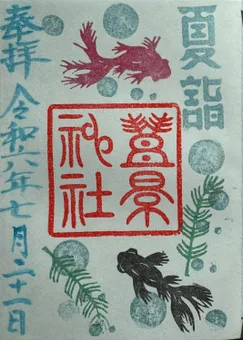 夏詣
景
神社
奉拝 令和六年七月二十一日